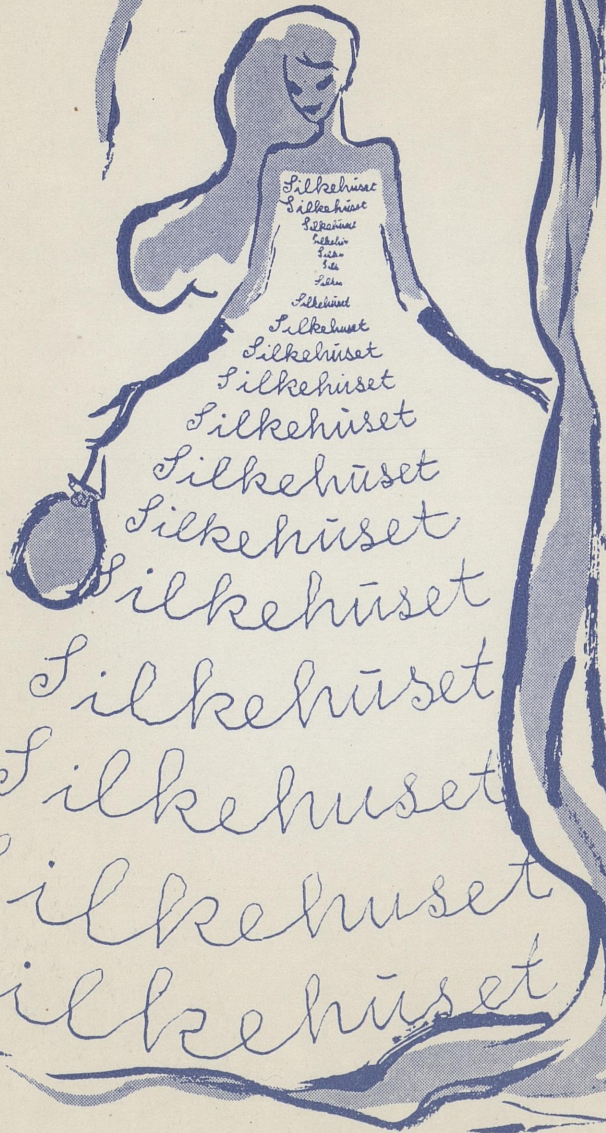 Silkehuset
Silkehuset
Silkehuset
Silkehu
Silke
Silk
Silke
Silkehuset
Silkehuset
Silkehuset
Silkehuset
Silkehuset
Silkehuset
Silkehuset
Silkehuset
Silkehuset
Silkehuset
Silkehuset
ilkehuset